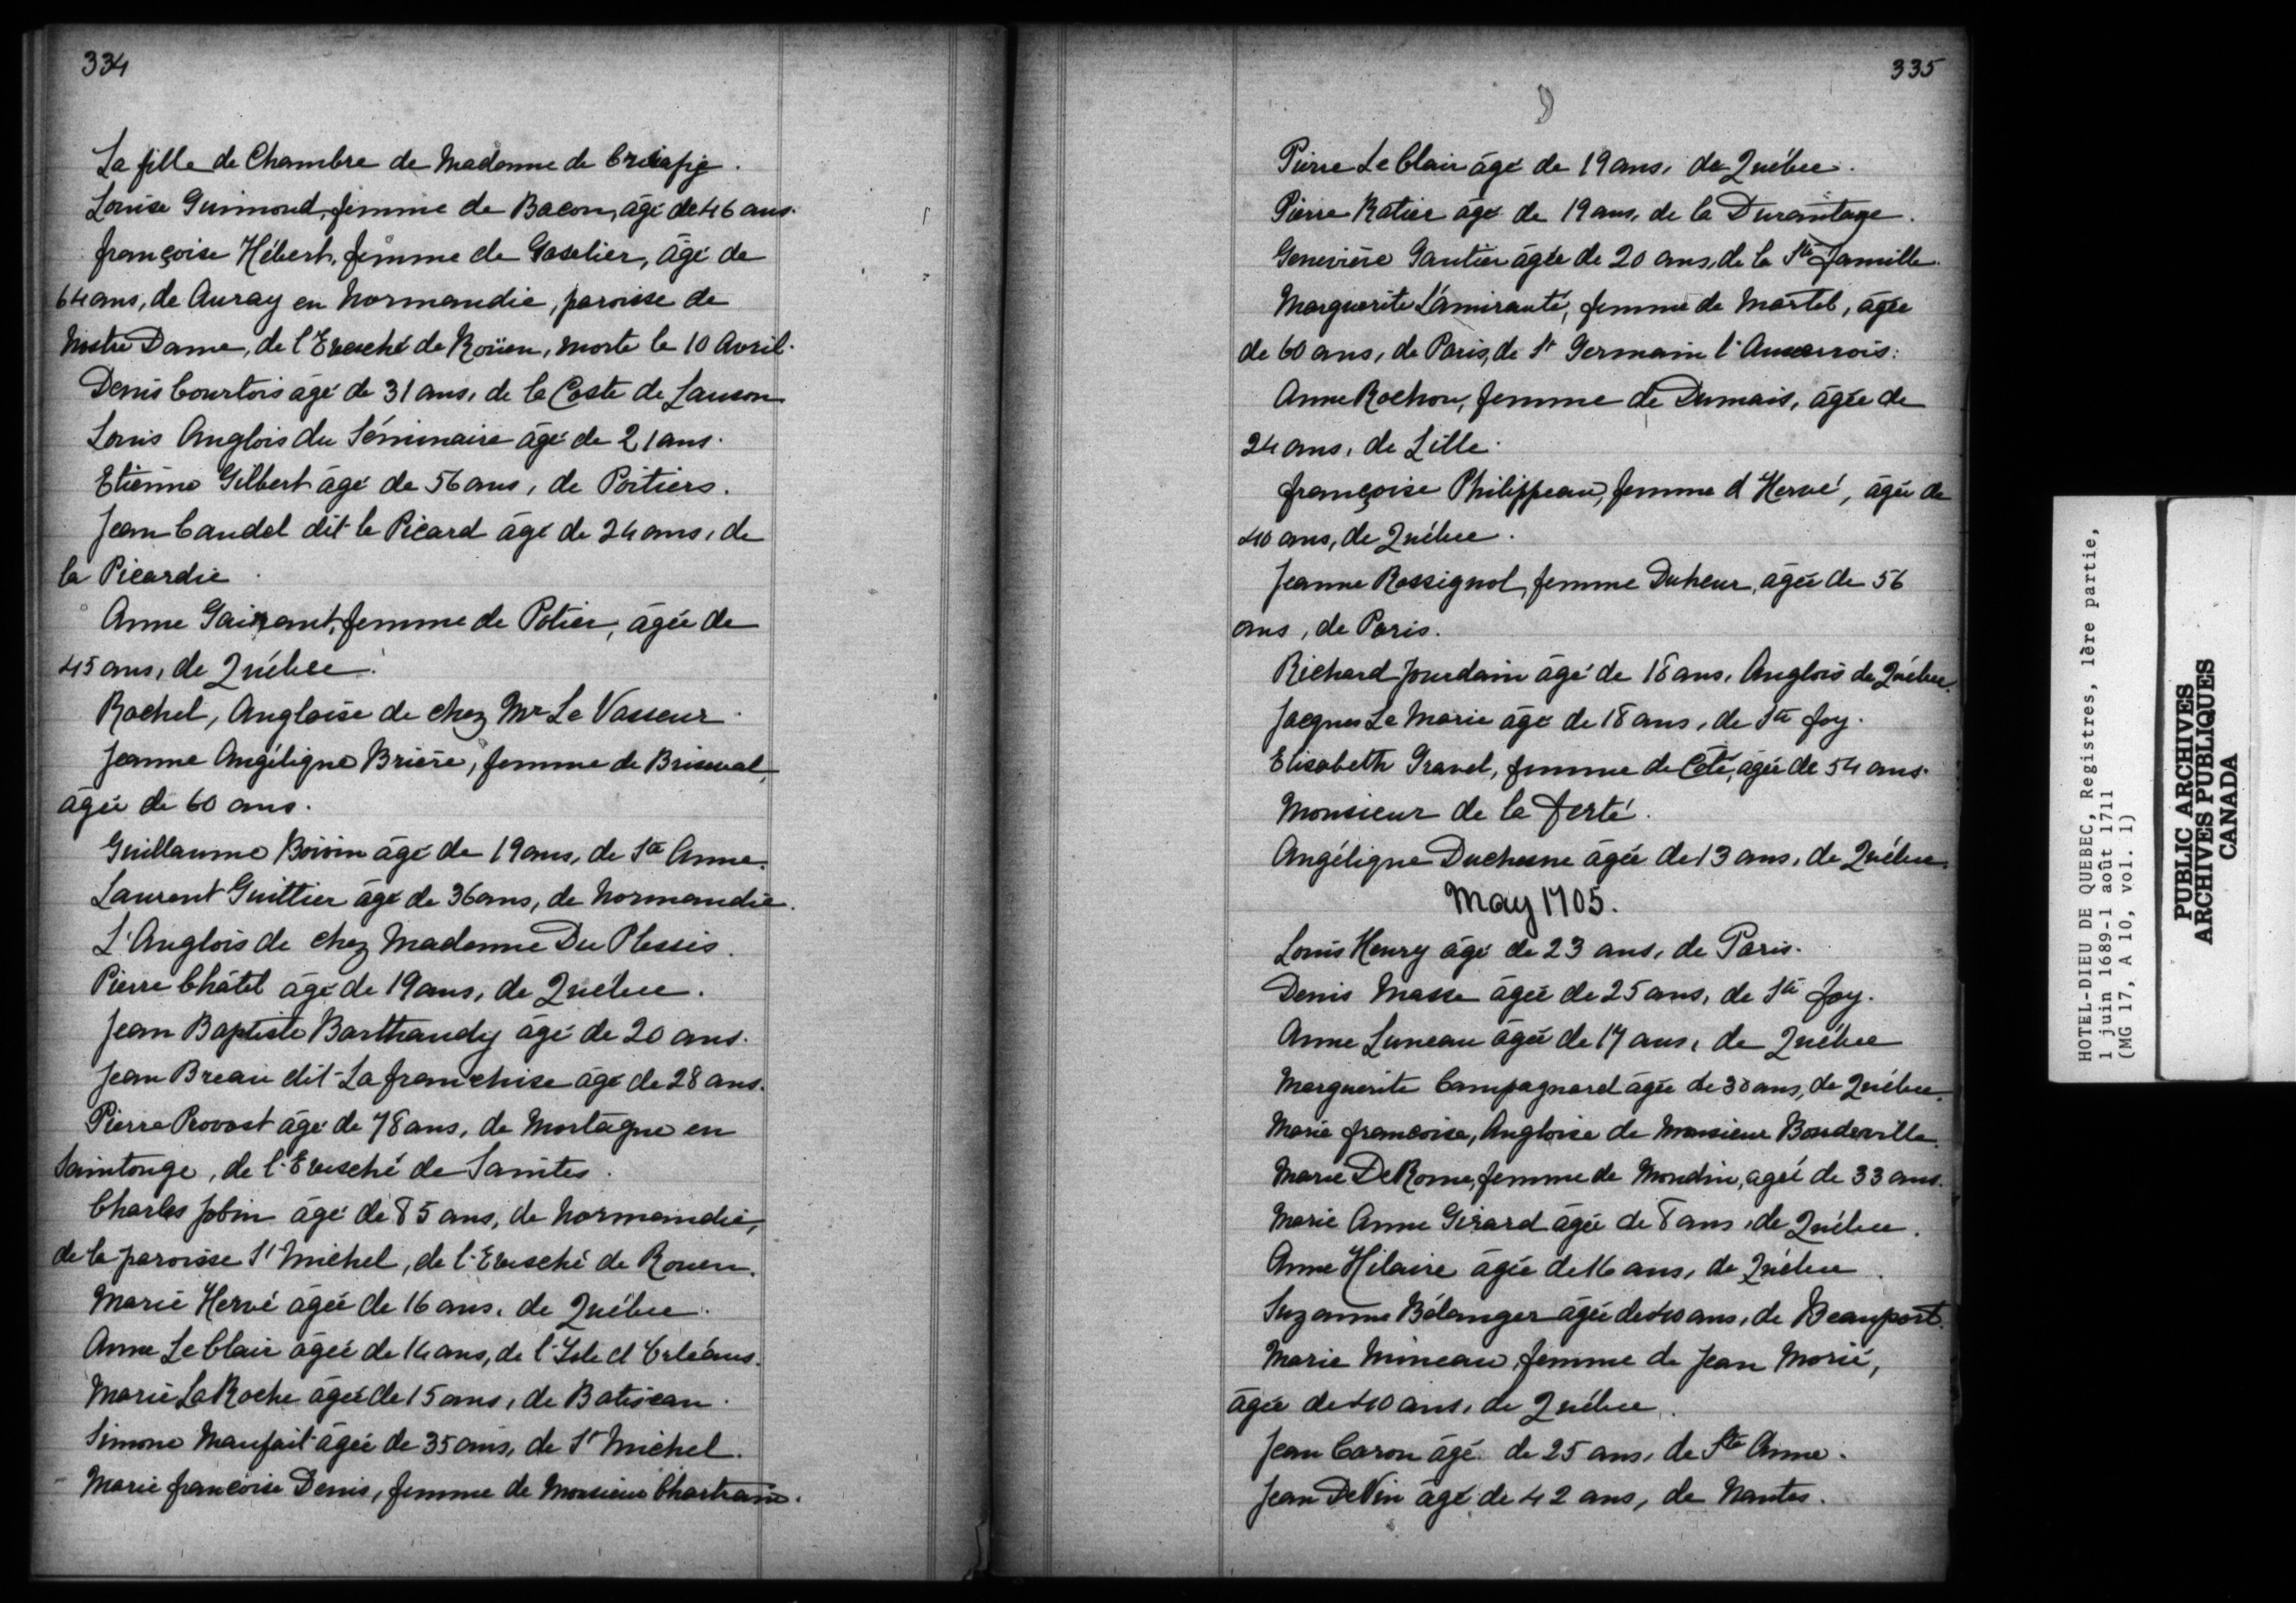 334
La fille de Chambre de Madame de Crisafy.
Louise Guimond, femme de Bacon, âgé de 46 ans.
françoise Hébert, femme de Gaselier, âgé de
64 ans, de Auray en Normandie, paroisse de
Nostre Dame, de l'Evesché de Roüen, morte le 10 Avril.
Denis Courtois âgé de 31 ans, de la Coste de Lauson
Louis Anglois du Séminaire âgé de 21 ans.
Etienne Gilbert âgé de 56 ans, de Poitiers.
Jean Caudel dit le Picard âgé de 24 ans, de
la Picardie.
Anne femme de Potier, âgée de
45 ans, de Québec.
Rachel, Angloise de chez Mr Le Vasseur.
Jeanne Angélique Brière, femme de Briseval,
âgée de 60 ans.
Guillaume Boivin âgé de 19 ans, de Ste Anne.
Laurent Guittier âgé de 36 ans, de Normandie.
L'Anglois de chez Madame Du Plessis.
Pierre Châtel âgé de 19 ans, de Québec.
Jean Baptiste Barthaudy âgé de 20 ans.
Jean Breau dit La franchise âgé de 28 ans.
Pierre Provost âgé de 78 ans, de Mortagne en
Saintonge, de l'Evesché de Saintes.
Charles Jobin âgé de 85 ans, de Normandie,
de la paroisse St Michel, de l'Evesché de Rouen.
Marie Hervé âgée de 16 ans, de Québec.
Anne Le Clair âgée de 14 ans, de l'Isle d'Orléans.
Marie La Roche âgée de 15 ans, de Batiscan.
Simone Maufait âgée de 35 ans, de St Michel.
Marie françoise Denis, femme de Monsieur Chartrain.
335
Pierre Le Clair âgé de 19 ans, de Québec.
Pierre Ratier âgé de 19 ans, de la Durantaye.
Geneviève Gautier âgée de 20 ans, de la Ste famille.
Marguerite L'amirauté, femme de Martel, âgée
de 60 ans, de Paris, de St Germain l'Auxerrois.
Anne Rochon, femme de Dumais, âgée de
24 ans, de Lille.
françoise Philippeau, femme d'Hervé, âgée de
40 ans, de Québec.
Jeanne Rossignol, femme Duheur, âgée de 56
ans, de Paris.
Richard Jourdain âgé de 18 ans, Anglois de Québec.
Jacques Le Marie âgé de 18 ans, de Ste foy.
Elisabeth Gravel, femme de Coté, âgée de 54 ans.
Monsieur de la ferté.
Angélique Duchesne âgée de 13 ans, de Québec.
May 1705.
Louis Henry âgé de 23 ans, de Paris.
Denis Masse âgée de 25 ans, de Ste foy.
Anne Luneau âgée de 17 ans, de Québec
Marguerite Campagnard âgée de 30 ans, de Québec.
Marie françoise, Angloise de Monsieur Bondeville.
Marie DeRome, femme de Mondin, agée de 33 ans.
Marie Anne Girard âgée de 8 ans, de Québec.
Anne Hilaire âgée de 16 ans, de Québec.
Suzanne Bélanger âgée de 40 ans, de Beauport.
Marie Mineau, femme de Jean Morié,
âgée de 40 ans, de Québec.
Jean Caron âgé de 25 ans, de Ste Anne.
Jean DeVin âgé de 42 ans, de Nantes.
HOTEL-DIEU DE QUEBEC, Registres, 1ère partie,
1 juin 1689-1 août 1711
(MG 17, A 10, vol. 1)
PUBLIC ARCHIVES
ARCHIVES PUBLIQUES
CANADA